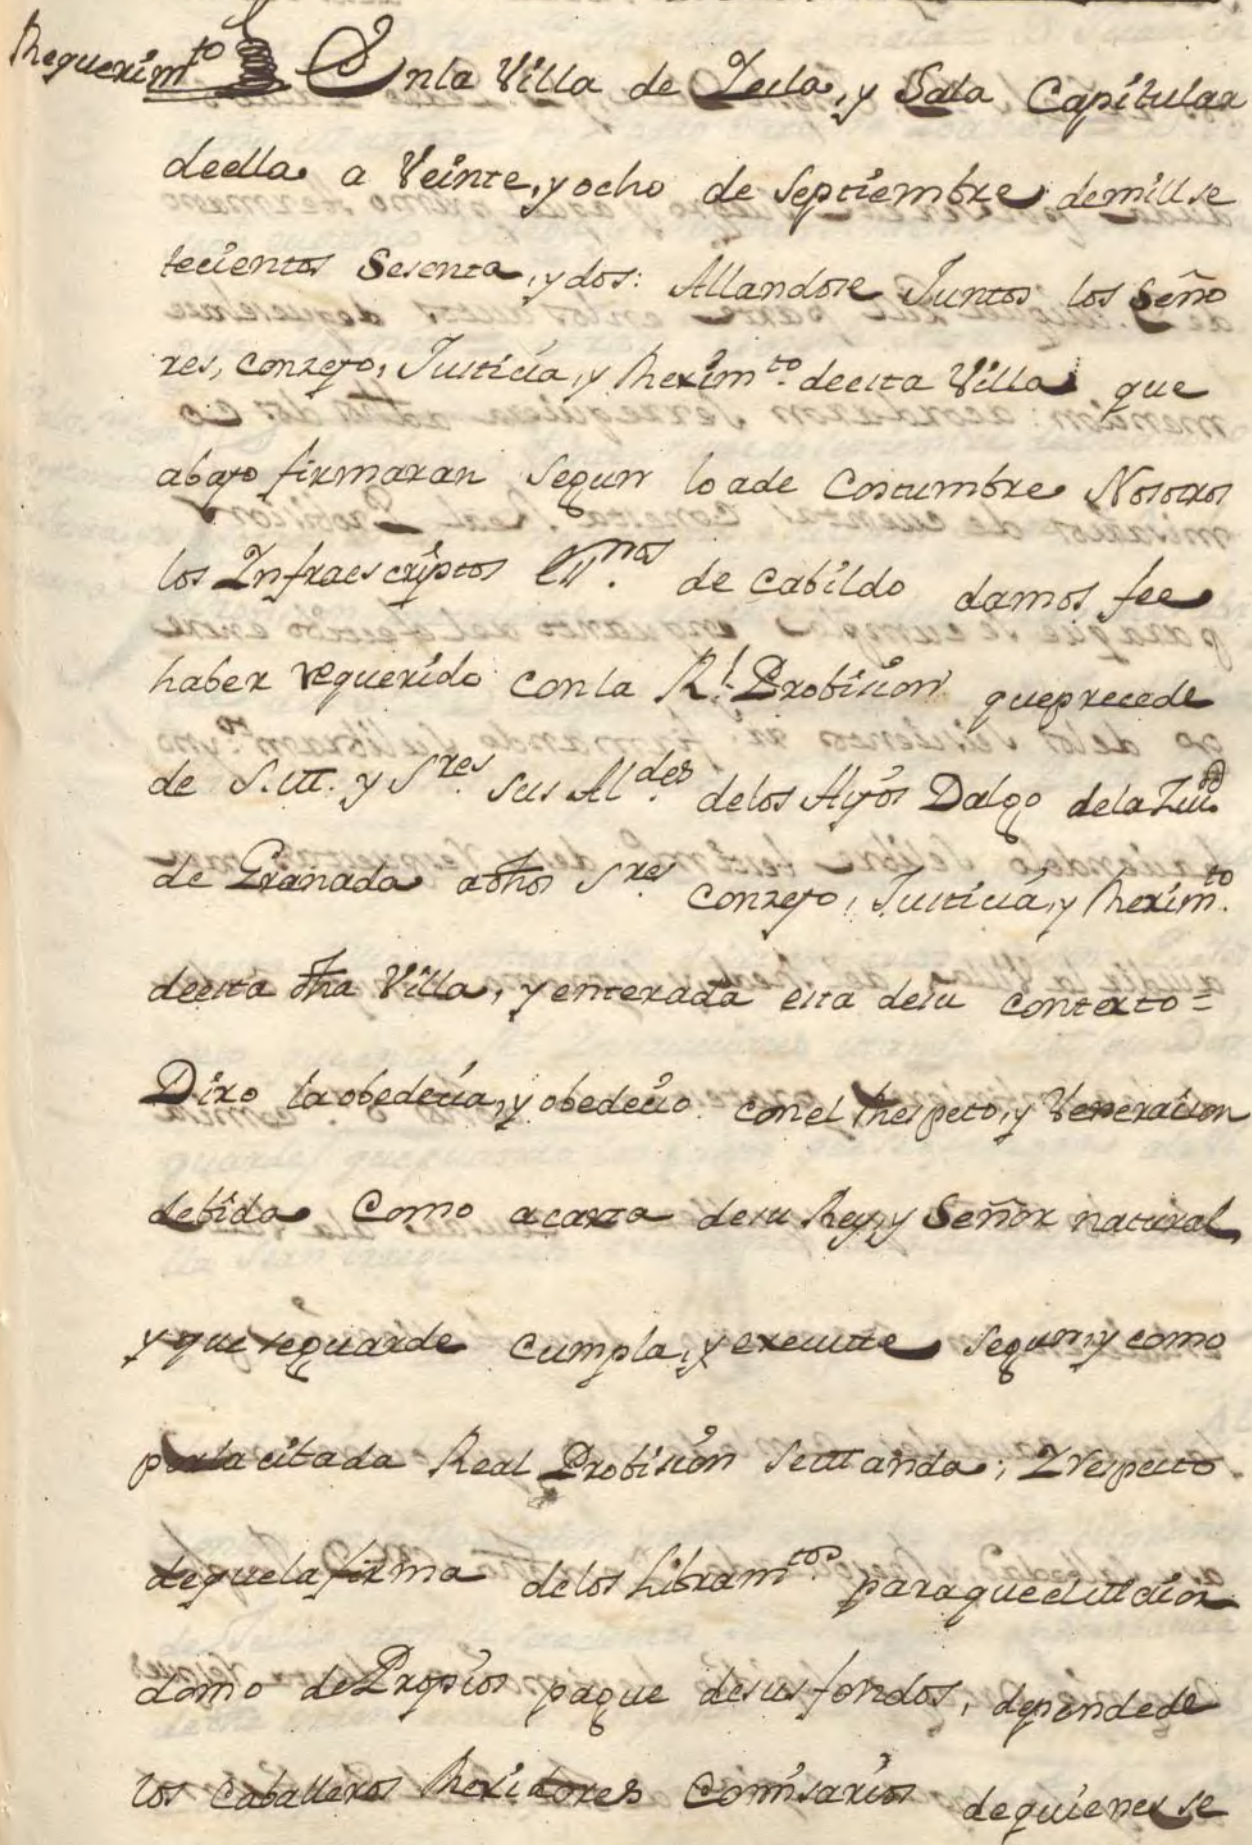 Requerim.to
Enla Villa de Yecla, y Sala Capitular
deella a Veinte, y ocho de Septiembre de mill se
tecientos Sesenta, y dos: Allandose Juntos los Seño
res, Conzejo, Justicia, y Rexim.to deesta Villa que
abajo firmaran segun lo ade Costumbre Nosotros
los Infraescriptos Ess.nos de Cabildo damos fee
haber requerido conla R.l Probision queprecede
de S.M. y S.res sus Al.des delos Hijos Dalgo dela Ziu.d
de Granada adhos S.res Conzejo, Justicia, y Rexim.to
deesta dha Villa, y enterada esta desu contexto =
Dixo la obedecia, y obedecio conel Respeto, y Veneracion
debida Como acarta desu Rey, y Señor natural,
y que seguarde Cumpla, y execute segun, y como
porla citada Real Probision semanda; Y respecto
dequela firma delos Libram.tos paraque elmaior
domo de Propios pague desus fondos, depende de
los Caballeros Rexidores Comisarios dequienes se